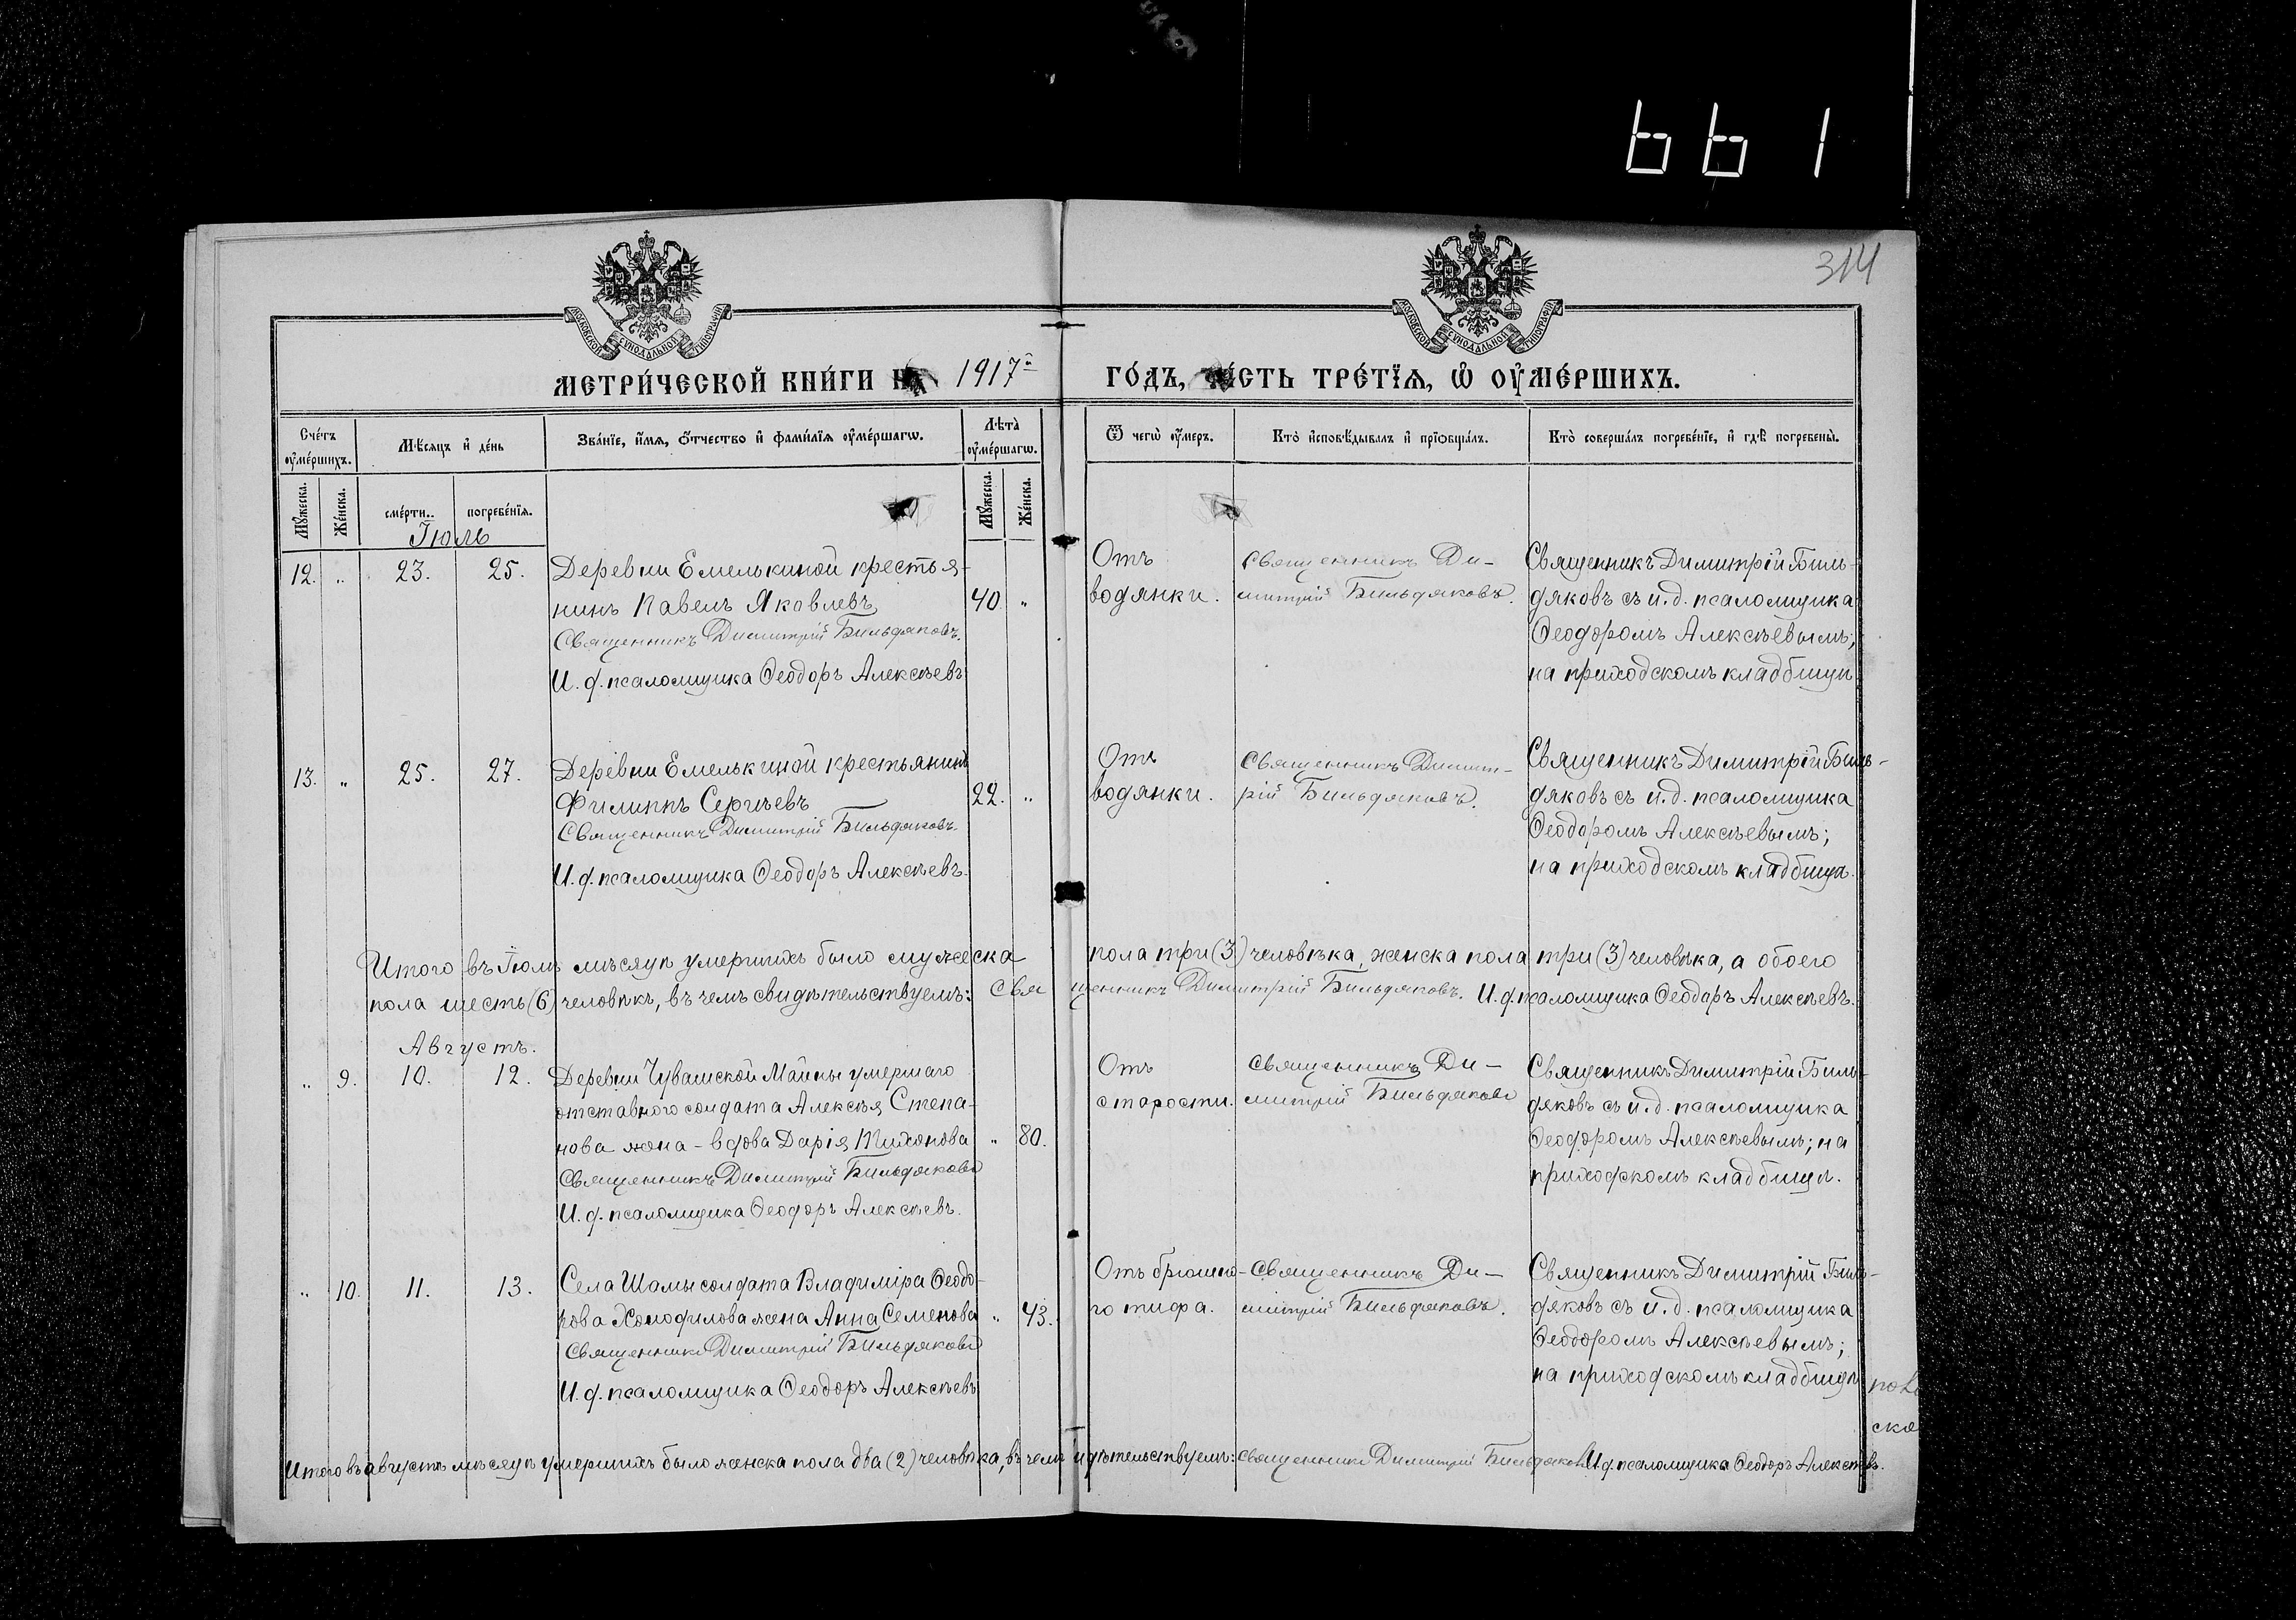 661
314
МОСКОВСКОЙ СѴНОДАЛЬНОЙ ТИПОГРАФІИ
МОСКОВСКОЙ СѴНОДАЛЬНОЙ ТИПОГРАФІИ
МЕТРИ́ЧЕСКОЙ КНИ́ГИ НА 1917й ГО́ДЪ, ЧА́СТЬ ТРЕ́ТІѦ, Ѡ҆ ОУ҆МЕ́РШИХЪ.
Сче́тъ оу҆ме́ршихъ.
Мѣ́сяцъ и҆ де́нь
Зва́нїе, и҆́мя, ѻ҆́тчество и҆ фами́лїя оу҆ме́ршагѡ.
Лѣ́та оу҆ме́ршагѡ.
Ѿ чегѡ̀ оу҆́меръ.
Кто̀ и҆сповѣ́дывалъ и҆ прїѡбща́лъ.
Кто̀ соверша́лъ погребе́нїе, и҆ гдѣ̀ погребены̀.
Мꙋ́жеска.
Же́нска.
сме́рти.
погребе́нїя.
Мꙋ́жеска.
Же́нска.
Іюль
12. „ 23. 25.
Деревни Емелькиной крестья-
нинъ Павелъ Яковлевъ
40 „
Священникъ Димитрій Бильдяковъ.
И. д. псаломщика Ѳеодоръ Алексѣевъ
Отъ
водянки.
Священникъ Ди-
митрій Бильдяковъ.
Священникъ Димитрій Биль-
дяковъ съ и. д. псаломщика
Ѳеодоромъ Алексѣевымъ;
на приходскомъ кладбищѣ
13. „ 25. 27.
Деревни Емелькиной крестьянинъ
Филиппъ Сергѣевъ
22. „
Священникъ Димитрій Бильдяковъ.
И. д. псаломщика Ѳеодоръ Алексѣевъ.
Отъ
водянки.
Священникъ Димит-
рій Бильдяковъ.
Священникъ Димитрій Биль-
дяковъ съ и. д. псаломщика
Ѳеодоромъ Алексѣевымъ;
на приходскомъ кладбищѣ.
Итого въ Іюлѣ мѣсяцѣ умершихъ было мужеска пола три (3) человѣка, женска пола три (3) человѣка, а обоего
пола шесть (6) человѣкъ, въ чемъ свидѣтельствуемъ: Священникъ Димитрій Бильдяковъ. И. д. псаломщика Ѳеодоръ Алексѣевъ.
Августъ.
„ 9. 10. 12.
Деревни Чувашской Майны умершаго
отставного солдата Алексѣя Степа-
нова жена - вдова Дарія Тихонова
„ 80.
Священникъ Димитрій Бильдяковъ
И. д. псаломщика Ѳеодоръ Алексѣевъ.
Отъ
старости.
Священникъ Ди-
митрій Бильдяковъ
Священникъ Димитрій Биль-
дяковъ съ и. д. псаломщика
Ѳеодоромъ Алексѣевымъ; на
приходскомъ кладбищѣ.
„ 10. 11. 13.
Села Шамы солдата Владиміра Ѳеодо-
рова жена Анна Семенова
„ 43.
Священникъ Димитрій Бильдяковъ
И. д. псаломщика Ѳеодоръ Алексѣевъ
Отъ брюшно-
го тифа.
Священникъ Ди-
митрій Бильдяковъ.
Священникъ Димитрій Биль-
дяковъ съ и. д. псаломщика
Ѳеодоромъ Алексѣевымъ;
на приходскомъ кладбищѣ
Итого въ августѣ мѣсяцѣ умершихъ было женска пола два (2) человѣка, въ чемъ свидѣтельствуемъ: Священникъ Димитрій Бильдяковъ И. д. псаломщика Ѳеодоръ Алексѣевъ.